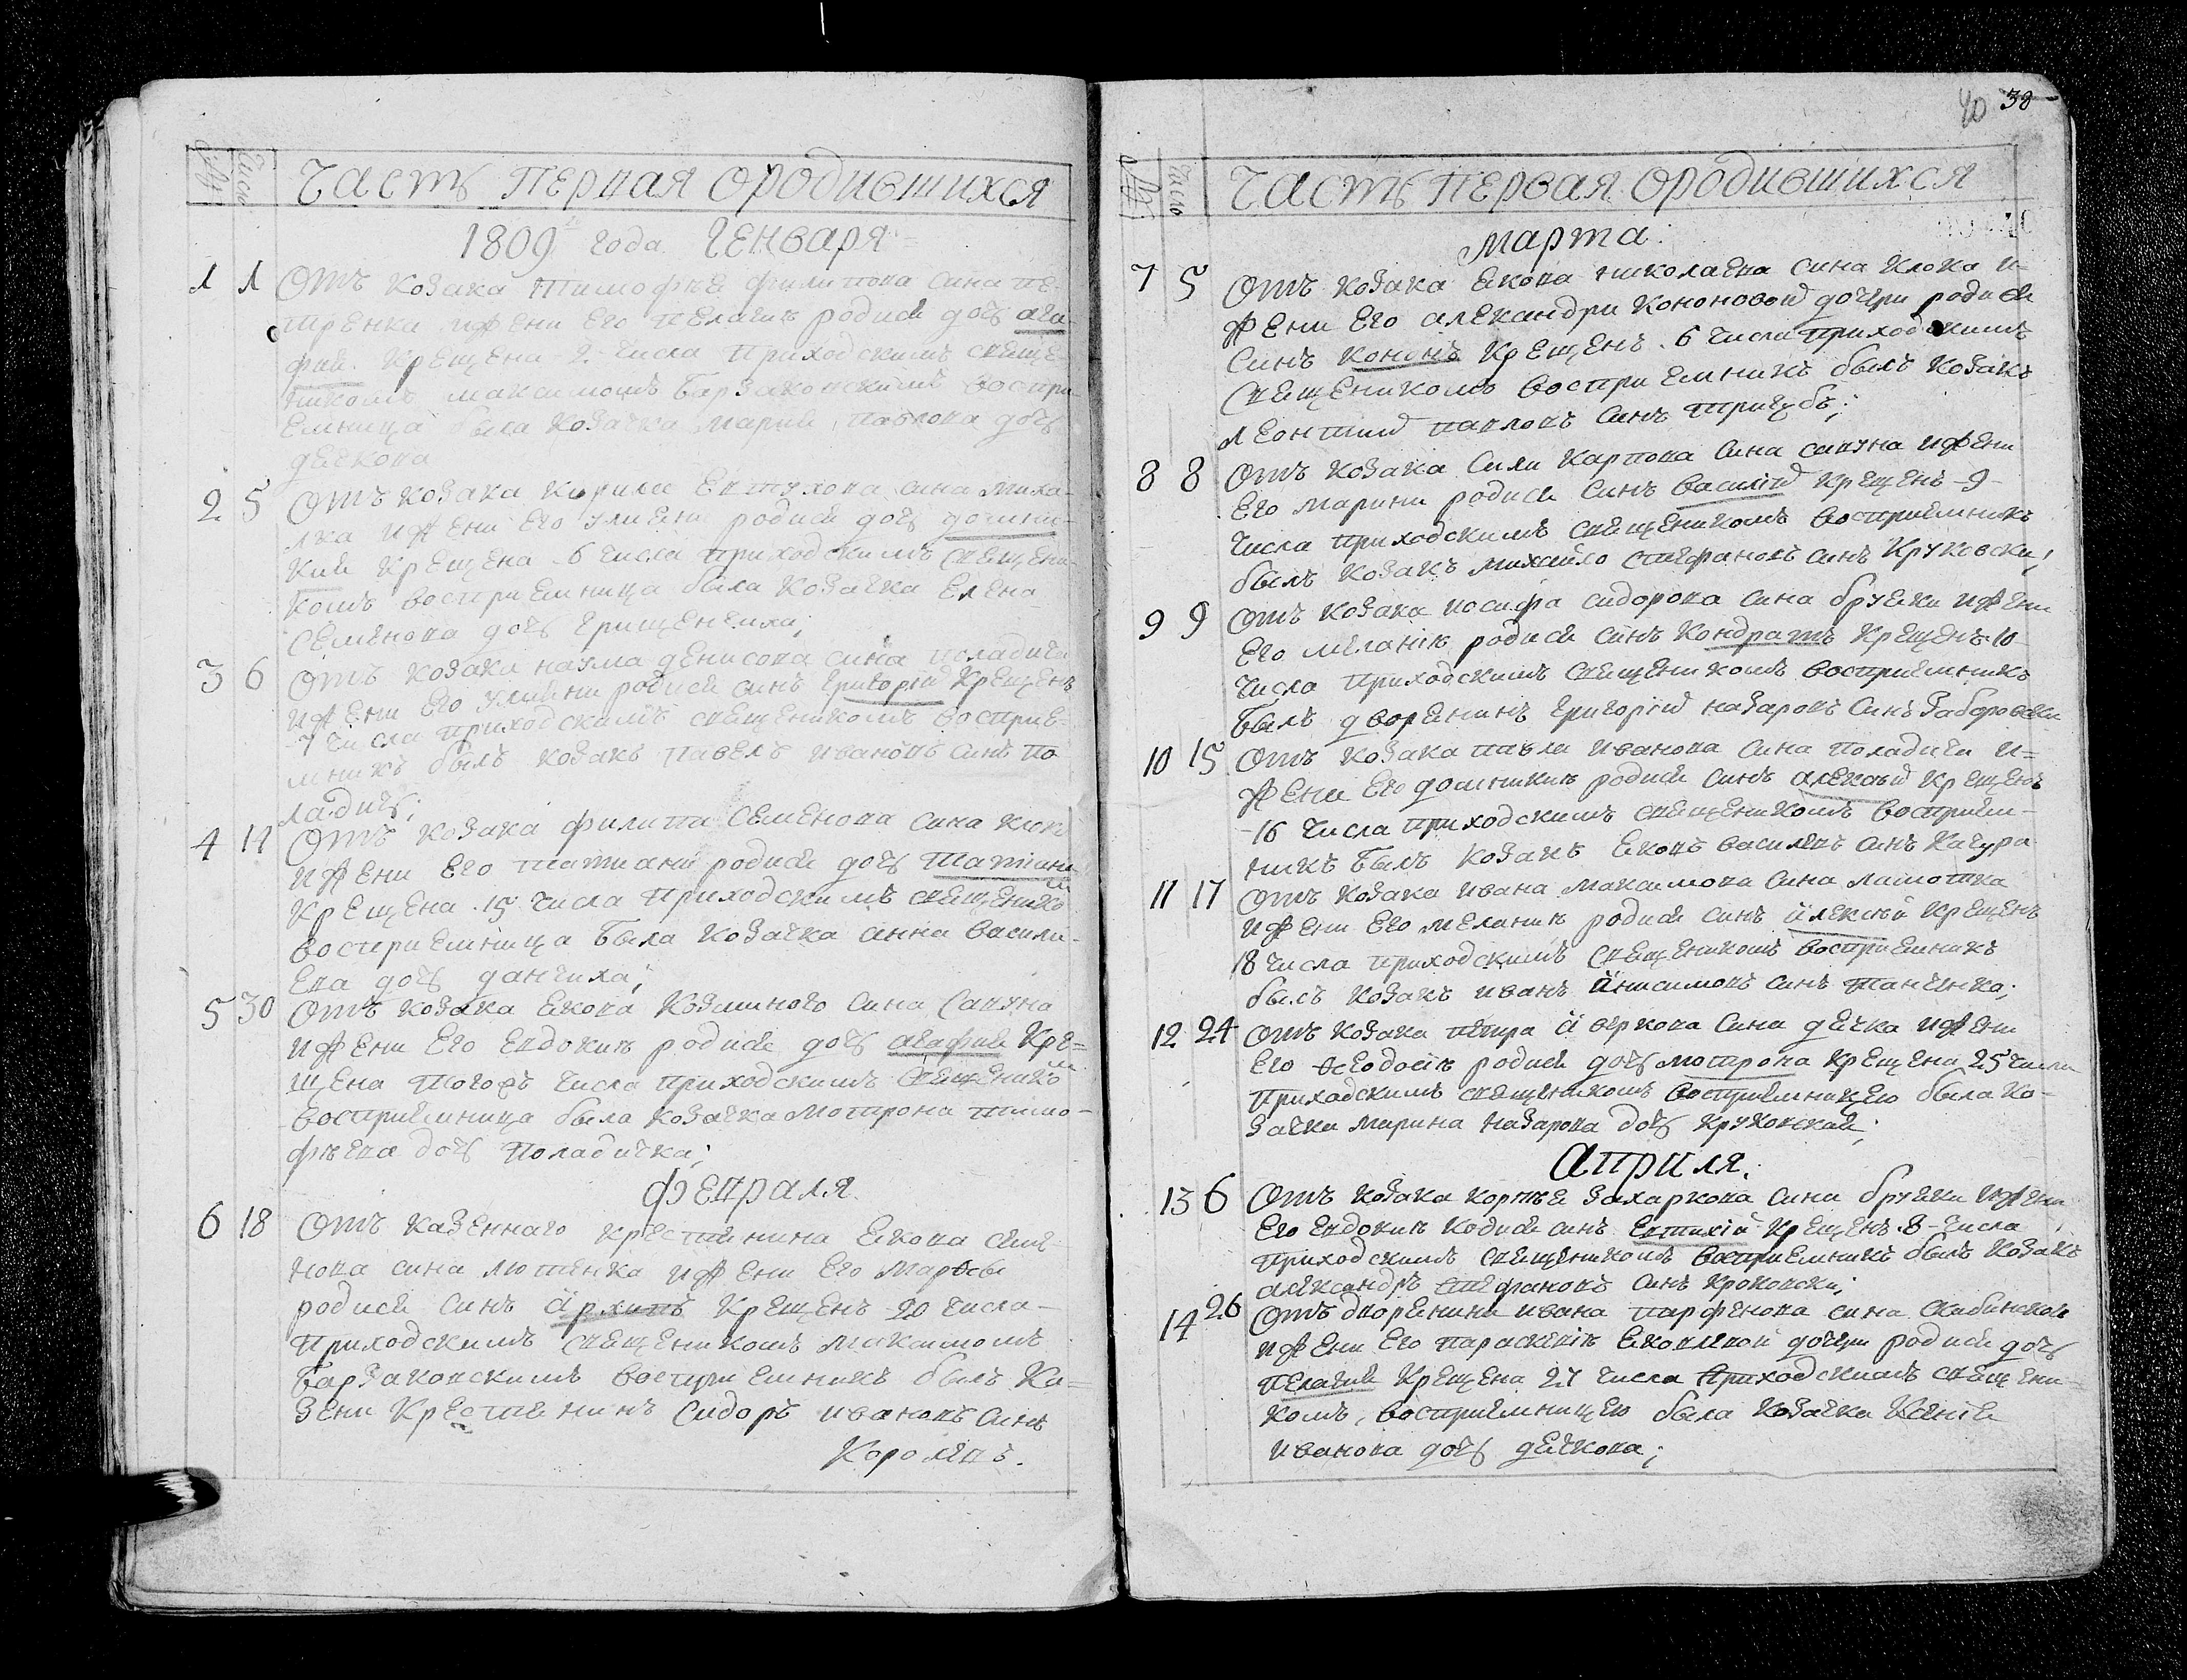 Число
Часть первая ородившихся
1809 года Генваря
1 1 Отъ козака Тимофѣя филипова сина пе-
тренка и жени его пелагиѣ родися дочь ага-
фия. Крещена 2. числа приходскимъ свяще-
никомъ максимомъ Барзаковскимъ воспри-
емница была козачка мария павлова дочь
дячкова
2 5 Отъ козака кирили Евтухова сина миха-
лка и жени его улияни родися дочь домни-
кия крещена 6 числа приходскимъ священи-
комъ восприемница была козачка Елена
семенова дочь грищенчиха;
3 6 Отъ козака наума денисова сина поладича
и жени его улияни родися синъ григорій крещенъ
7 числа приходскимъ священикомъ восприе-
мникъ былъ козакъ павелъ ивановъ синъ по
ладичъ;
4 14 Отъ козака филипа семенова сина клока
и жени его татиани родися дочь татиана
крещена 15 числа приходскимъ священико
восприемница была козачка анна васили-
ева дочь данчиха;
5 30 Отъ козака якова козминого сина сапуна
и жени его евдокиѣ родися дочь агафия кре=
щена тогожъ числа приходскимъ священико
восприемница была козачка мотрона тимо-
фѣева дочь поладичка;
февраля
6 18 Отъ казенного крестянина якова семе-
нова сина лютенка и жени его марѳы
родися синъ архипъ крещенъ 20 числа-
приходскимъ священикомъ максимомъ
барзаковскимъ восприемникъ былъ ка=
зени крестянинъ сидоръ ивановъ синъ
королявъ.
40 38
Число
Часть первая ородившихся
марта:
7 5 Отъ козака якова николаева сина клока и-
жени его александри кононовой дочери родися
синъ кононъ крещенъ. 6 числа приходскимъ
священикомъ восприемникъ былъ козакъ
леонтий павловъ синъ тригубъ;
8 8 Отъ козака сили карпова сина сапуна и жени
его марини родися синъ василій крещенъ -9-
числа приходскимъ священикомъ восприемникъ
былъ козакъ михайло стефановъ синъ круковски;
9 9 Отъ козака иосифа сидорова сина бруяки и жени
его меланіѣ родися синъ кондратъ крещенъ 10
числа приходскимъ священикомъ восприемникъ
былъ дворянинъ григорій назаровъ синъ Заборовски
10 15 Отъ козака павла иванова сина поладича и=
жени его домникиѣ родися синъ алексѣй крещенъ
-16 числа приходскимъ священикомъ восприем-
никъ былъ козакъ яковъ василевъ синъ качура
11 17 Отъ козака ивана максимова сина
и жени его меланиѣ родися синъ алексѣй крещенъ
18 числа приходскимъ священикомъ восприемникъ
былъ козакъ иванъ анисимовъ синъ танченко;
12 24 Отъ козака петра аверкова сина дячка и жени
его ѳеодосіѣ родися дочь мотрона крещена 25 числа
приходскимъ священикомъ восприемницею была ко-
зачка марина назарова дочь круковская;
Априля;
13 6 Отъ козака корнѣя захаркова сина бруяки и жени
его евдокиѣ родися синъ евтихій крещенъ. 8-числа
приходскимъ священикомъ восприемникъ былъ козакъ
александръ стефановъ синъ кроковски;
14 26 Отъ дворянина ивана парфенова сина скабинского
и жени его параскевіѣ яковлевой дочери родися дочь
пелагия крещена 27 числа приходскимъ священи-
комъ, восприемницею была козачка ксенія
иванова дочь дячкова;